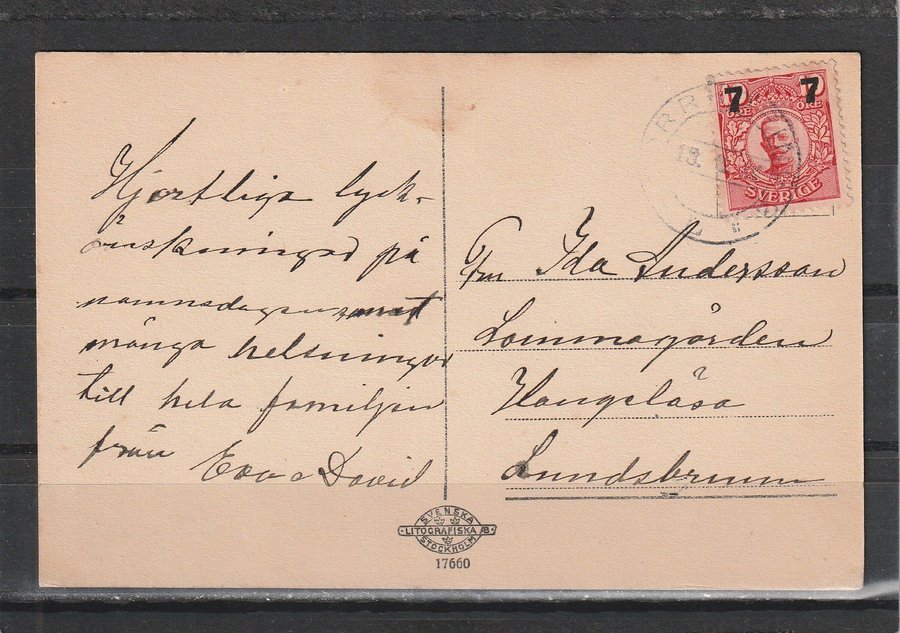 Hjertliga lyck-
önskningar på
namnsdagen samt
många helsningar
till hela familjen
från Eva o David
7 7
ÖRE ÖRE
SVERIGE
13.
Fru Ida Andersson
Lommagården
Hangelösa
Lundsbrunn
SVENSKA
LITOGRAFISKA AB.
STOCKHOLM
17660